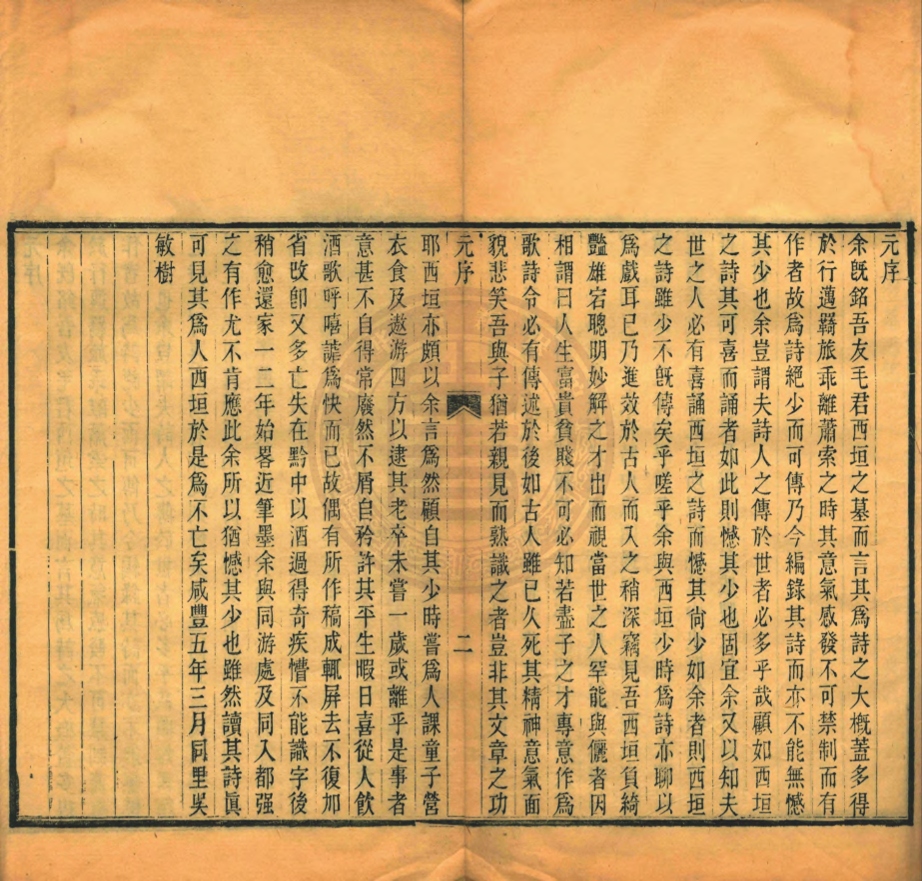 元序
余旣銘吾友毛君西垣之墓而言其爲詩之大槪蓋多得
於行邁羇旅乖離蕭索之時其意氣感發不可禁制而有
作者故爲詩絕少而可傳乃今編錄其詩而亦不能無憾
其少也余豈謂夫詩人之傳於世者必多乎哉顧如西垣
之詩其可喜而誦者如此則憾其少也固宜余又以知夫
世之人必有喜誦西垣之詩而憾其尙少如余者則西垣
之詩雖少不旣傳矣乎嗟乎余與西垣少時爲詩亦聊以
爲戲耳已乃進效於古人而入之稍深竊見吾西垣負綺
豔雄宕聰明妙解之才出而視當世之人罕能與儷者因
相謂曰人生富貴貧賤不可必知若盡子之才專意作爲
歌詩令必有傳述於後如古人雖已久死其精神意氣面
貌悲笑吾與子猶若親見而熟識之者豈非其文章之功
元序
二
耶西垣亦頗以余言爲然顧自其少時嘗爲人課童子營
衣食及遨游四方以逮其老卒未嘗一歲或離乎是事者
意甚不自得常廢然不屑自矜許其平生暇日喜從人飮
酒歌呼嘻謔爲快而已故偶有所作稿成輒屏去不復加
省改卽又多亡失在黔中以酒過得奇疾懵不能識字後
稍愈還家一二年始畧近筆墨余與同游處及同入都强
之有作尤不肯應此余所以猶憾其少也雖然讀其詩眞
可見其爲人西垣於是爲不亡矣咸豐五年三月同里吳
敏樹